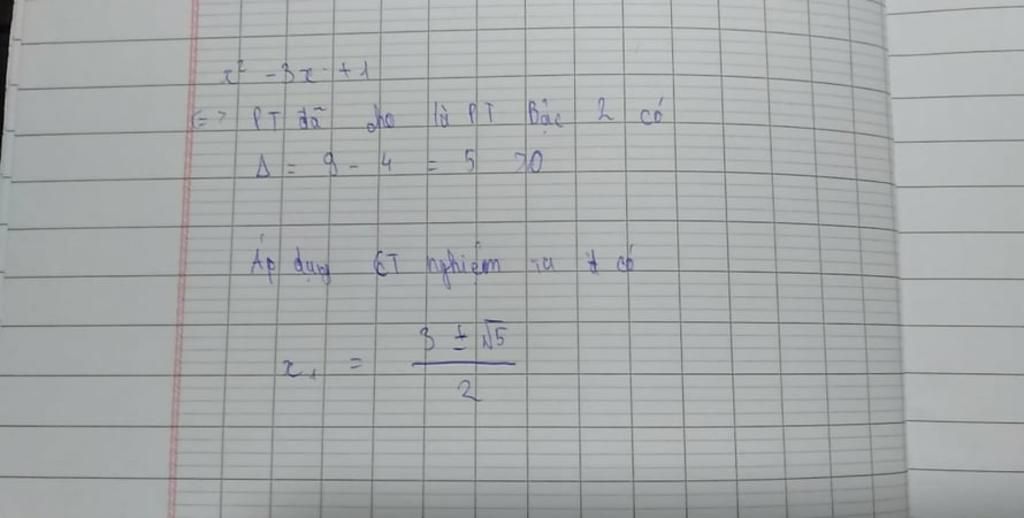 x² - 3x + 1
=> PT đã cho là PT Bậc 2 có
Δ = 9 - 4 = 5 >0
Áp dụng CT nghiệm ta có
x₁ = (3 ± √5) / 2